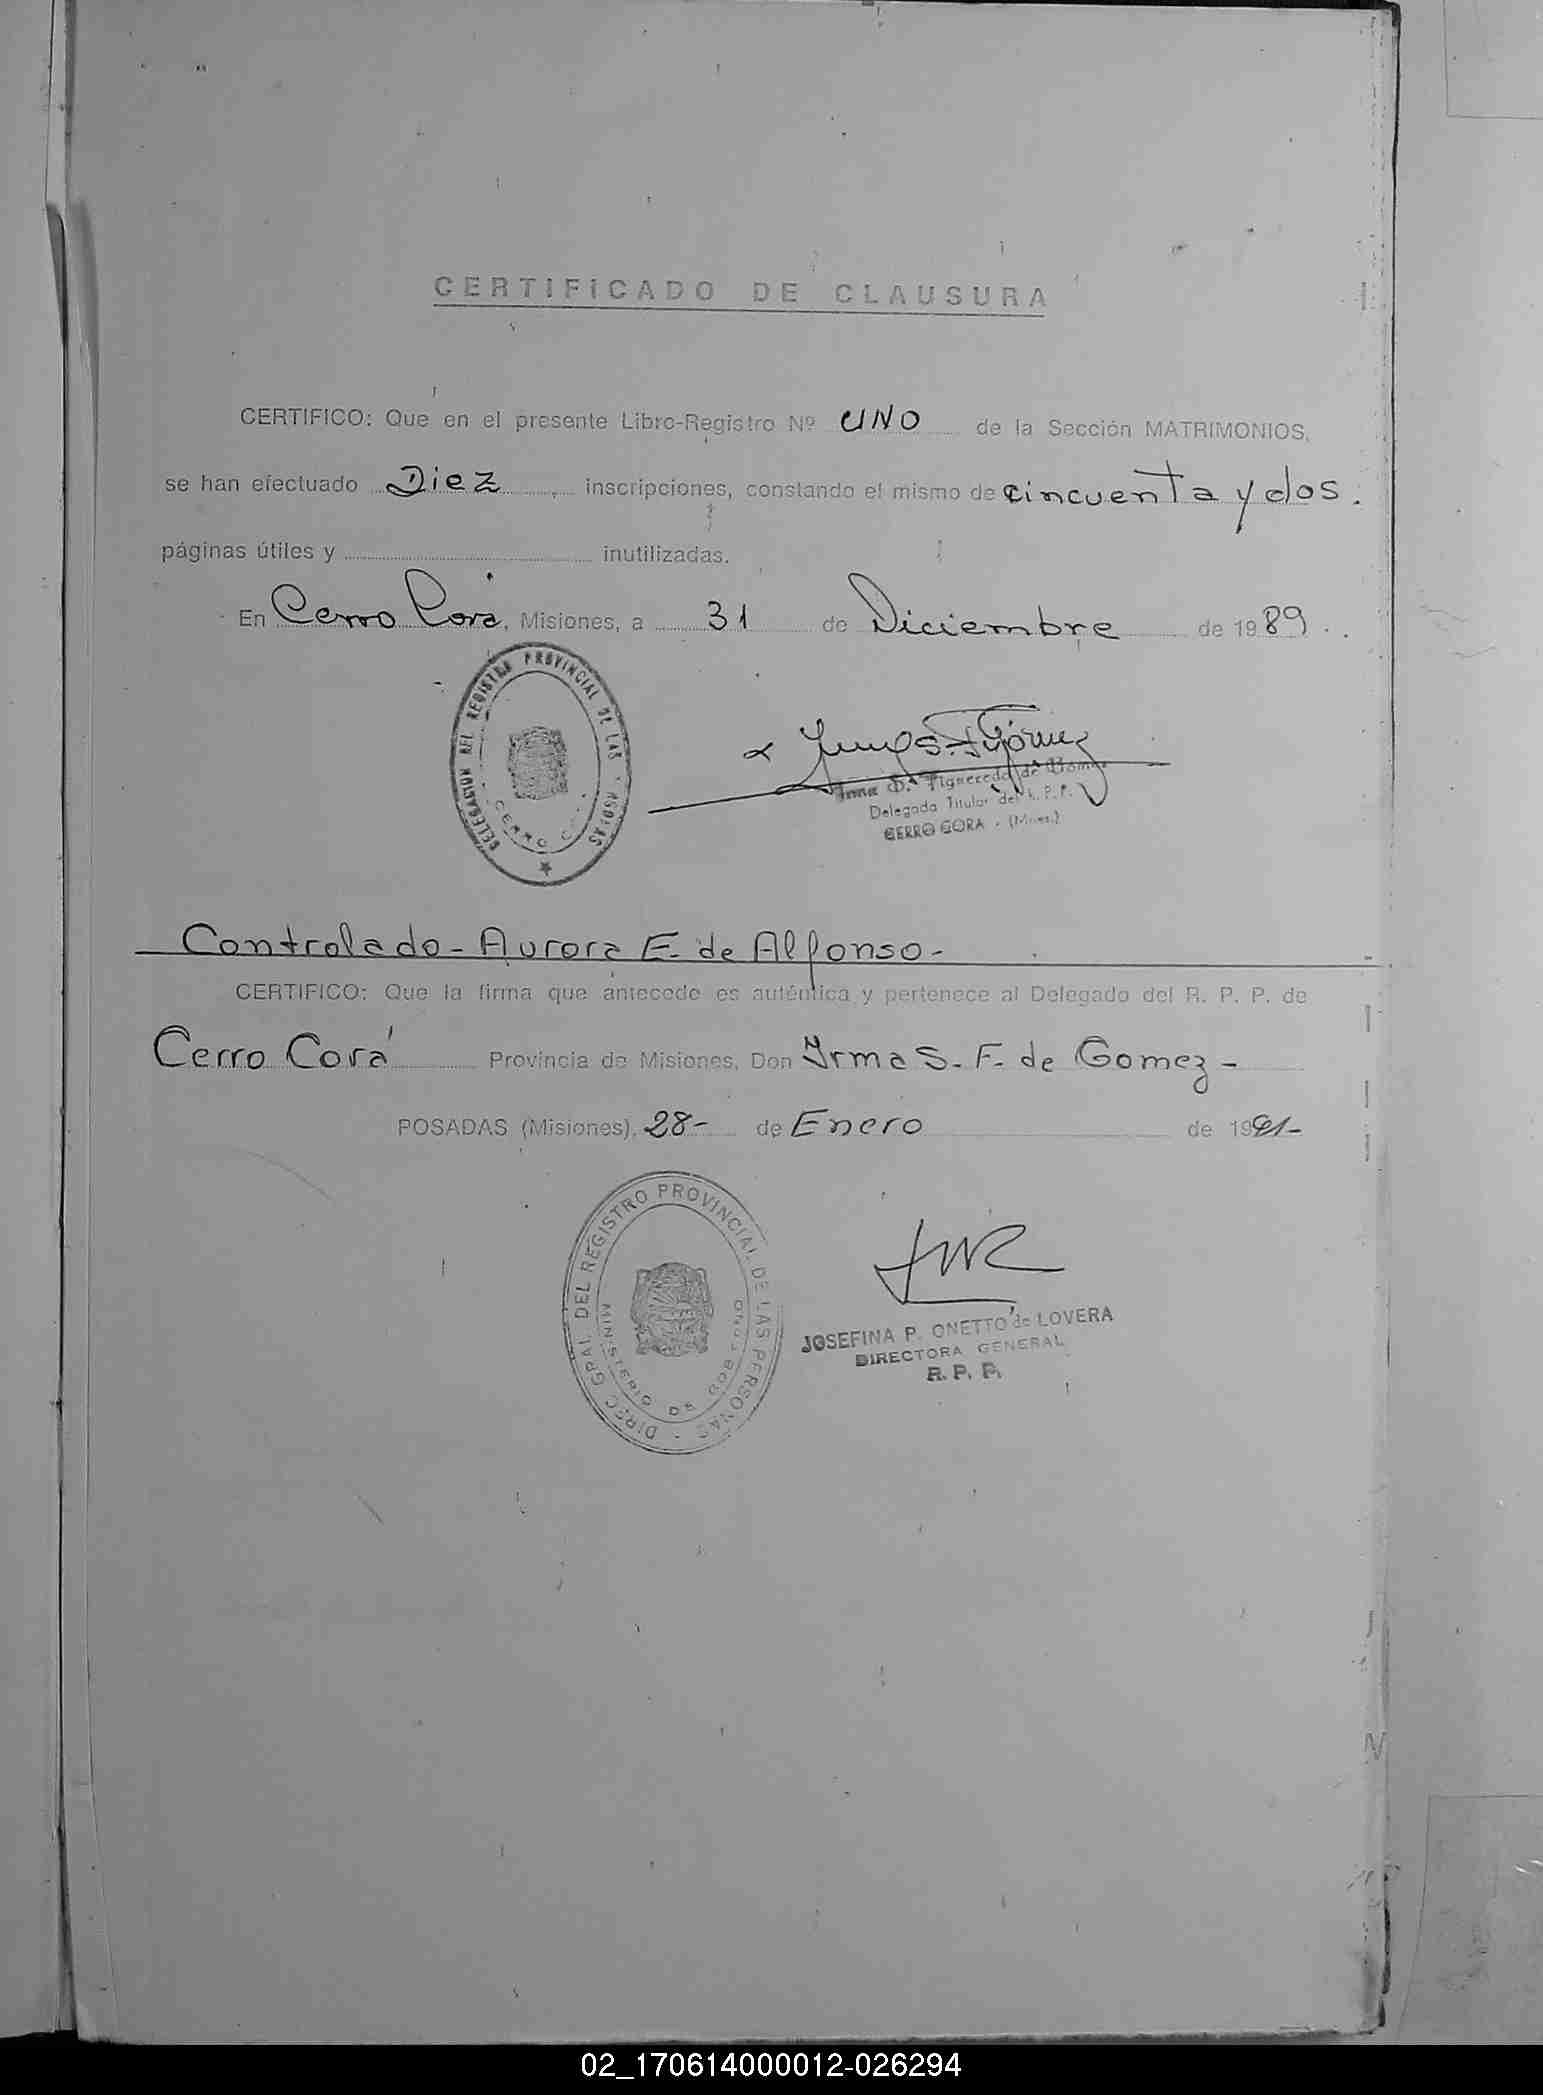 CERTIFICADO DE CLAUSURA
CERTIFICO: Que en el presente Libro-Registro Nº UNO de la Sección MATRIMONIOS,
se han efectuado Diez inscripciones, constando el mismo de cincuenta y dos.
páginas útiles y inutilizadas.
En Cerro Corá, Misiones, a 31 de Diciembre de 1989.
DELEGACION DEL REGISTRO PROVINCIAL DE LAS
CERRO
de
Delegada Titular del R. P. P.
CERRO CORA - (Mnes.)
Controlado - Aurora E. de Alfonso -
CERTIFICO: Que la firma que antecede es auténtica y pertenece al Delegado del R. P. P. de
Cerro Corá Provincia de Misiones, Don Yrma S. F. de Gomez -
POSADAS (Misiones), 28- de Enero de 1991-
DIREC. GRAL. DEL REGISTRO PROVINCIAL DE LAS PERSONAS -
MINISTERIO DE GOBIERNO
JOSEFINA P. ONETTO de LOVERA
DIRECTORA GENERAL
R. P. P.
02_170614000012-026294